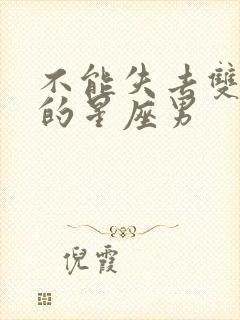 不能失去雙
的星座男
倪霞